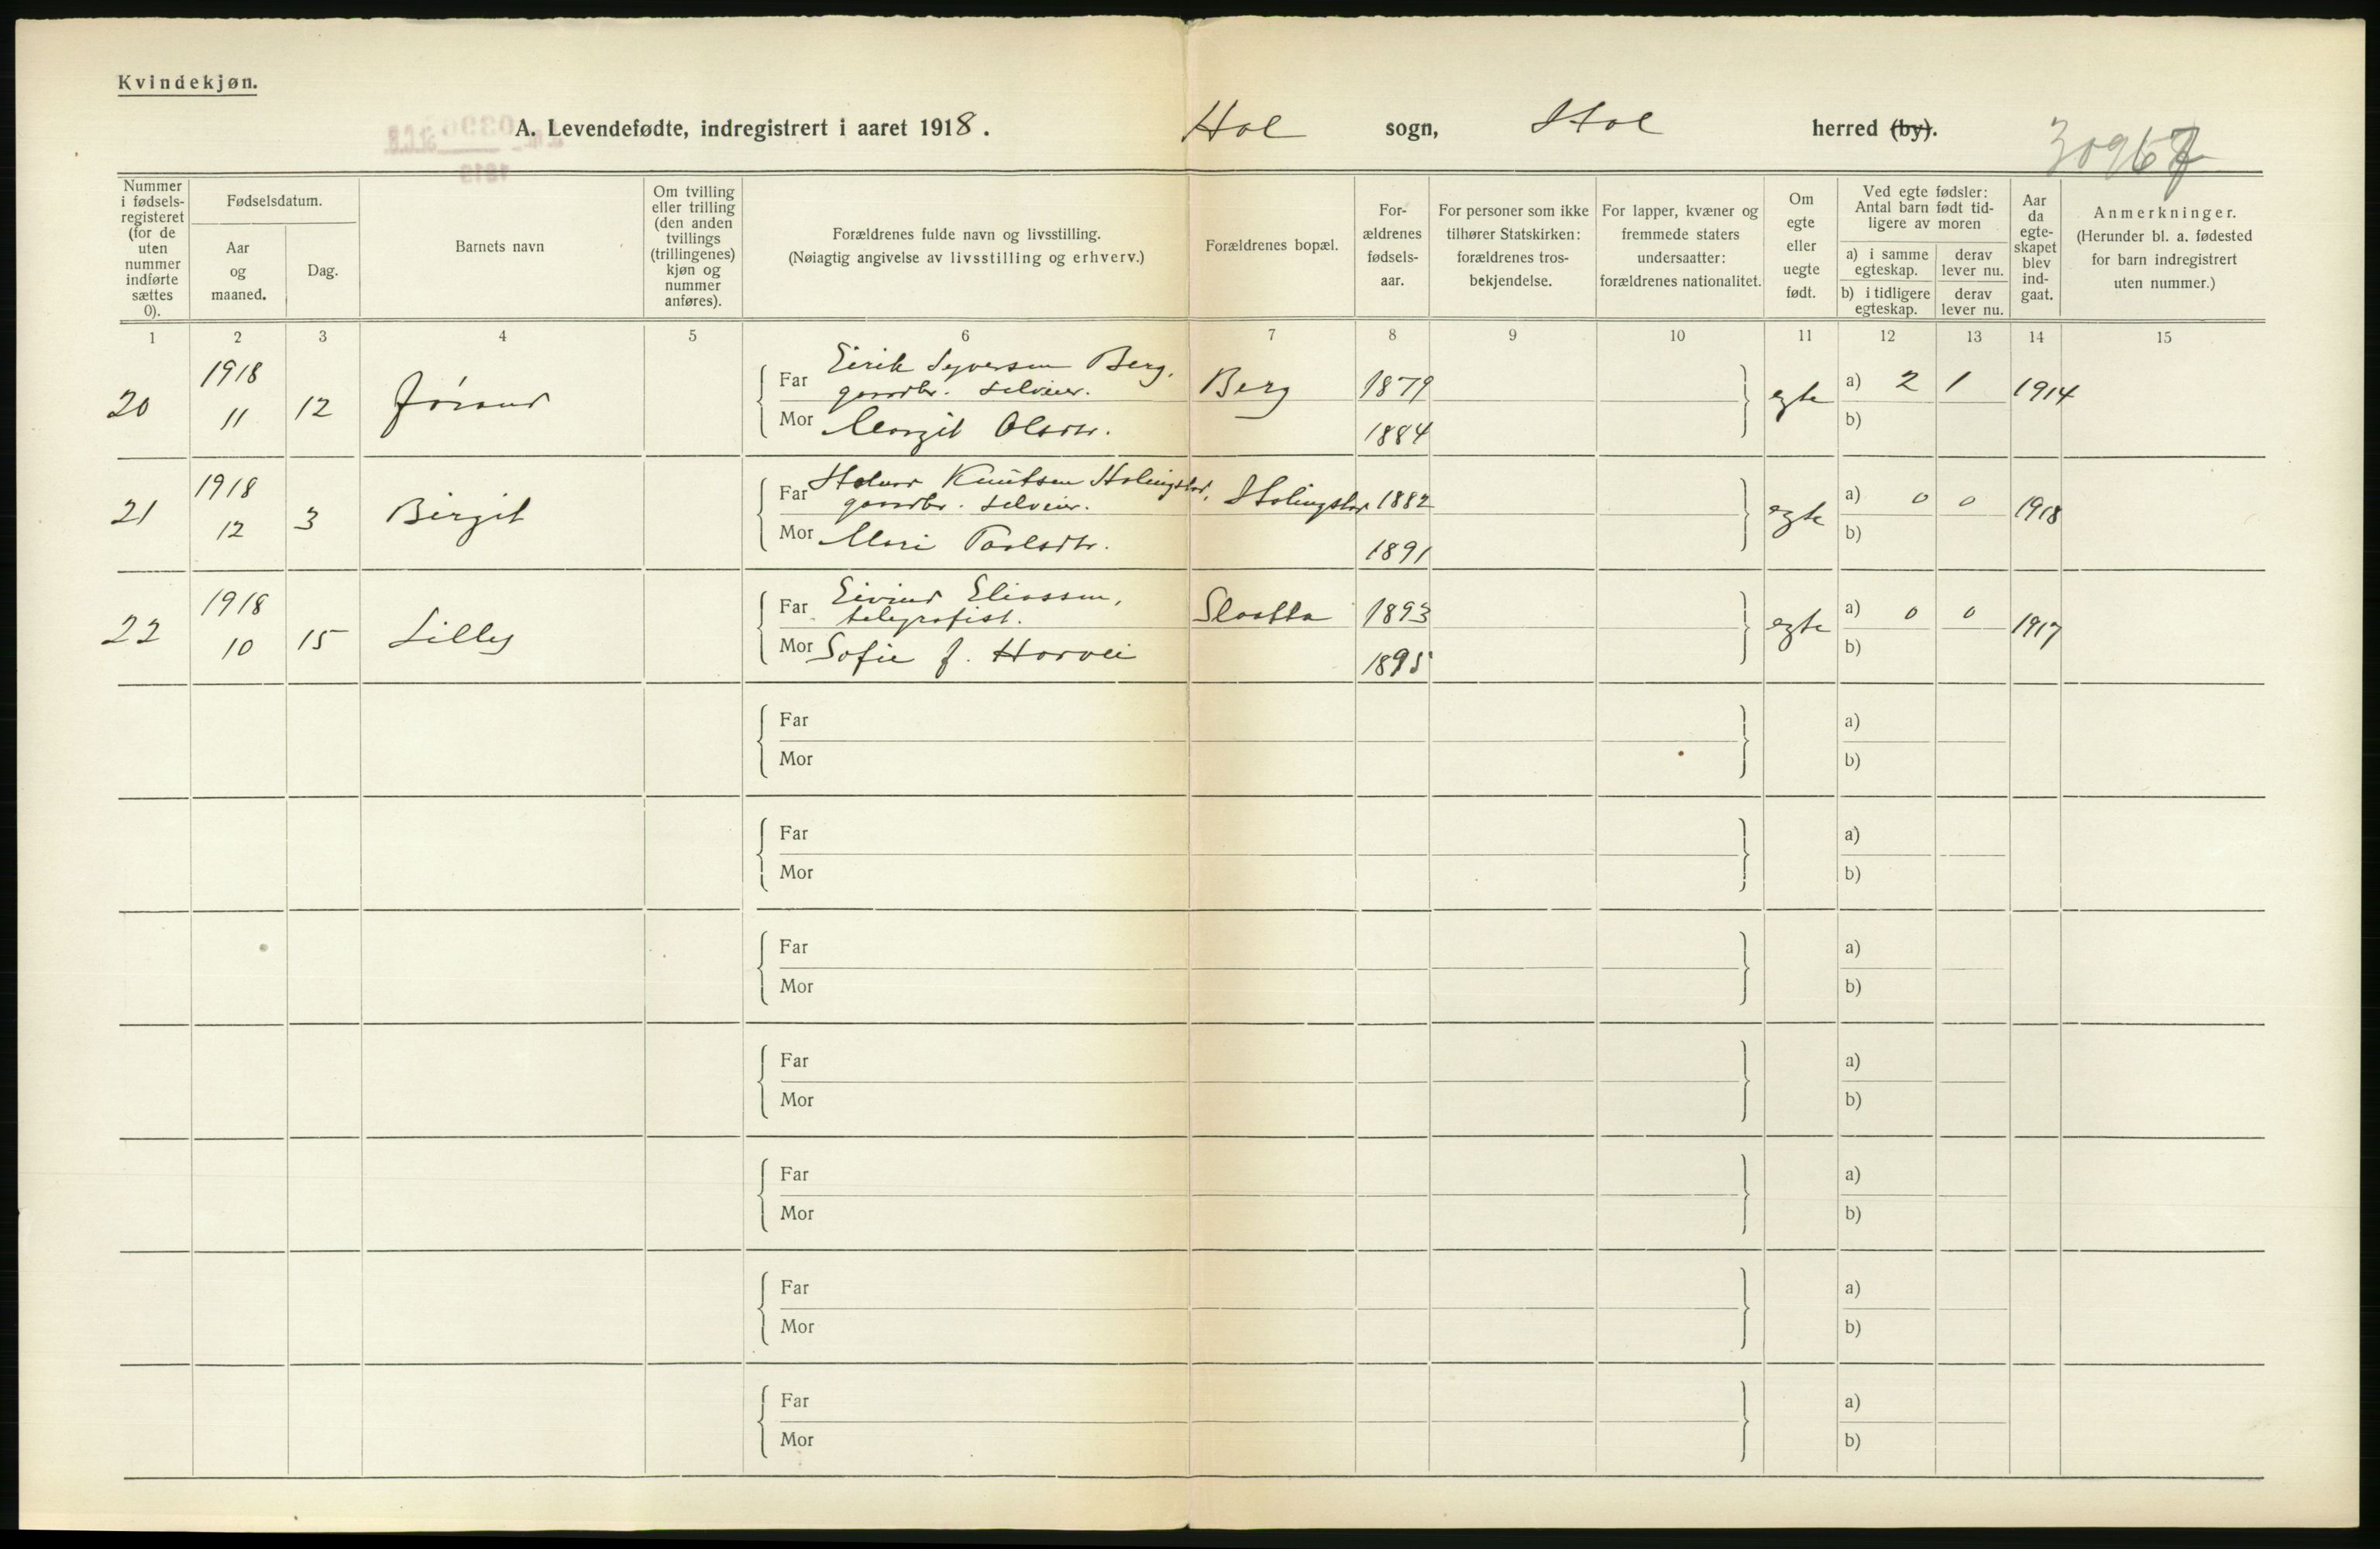 Kvindekjøn.
A. Levendefødte, indregistrert i aaret 1918. Hol sogn, Hol herred (by).
30967
Nummer i fødsels-registeret (for de uten nummer indførte sættes 0).
Fødselsdatum.
Aar og maaned.
Dag.
Barnets navn
Om tvilling eller trilling (den anden tvillings (trillingenes) kjøn og nummer anføres).
Forældrenes fulde navn og livsstilling.
(Nøiagtig angivelse av livsstilling og erhverv.)
Forældrenes bopæl.
For-ældrenes fødsels-aar.
For personer som ikke tilhører Statskirken: forældrenes tros-bekjendelse.
For lapper, kvæner og fremmede staters undersaatter: forældrenes nationalitet.
Om egte eller uegte født.
Ved egte fødsler: Antal barn født tid-ligere av moren
a) i samme egteskap.
derav lever nu.
b) i tidligere egteskap.
derav lever nu.
Aar da egte-skapet blev ind-gaat.
Anmerkninger.
(Herunder bl. a. fødested for barn indregistrert uten nummer.)
1 2 3 4 5 6 7 8 9 10 11 12 13 14 15
20 1918 11 12 Jørand
Far Eirik Syversen Berg, gaardbr. selveier. Berg 1879 egte a) 2 1 1914
Mor Margit Olsdtr. 1884 b)
21 1918 12 3 Birgit
Far Knutsen gaardbr. selveier. 1882 egte a) 0 0 1918
Mor Mari Paalsdtr. 1891 b)
22 1918 10 15 Lilly
Far Eivind Eliassen, telegrafist. Slaatta 1893 egte a) 0 0 1917
Mor Sofie f. Harvei 1895 b)
Far a)
Mor b)
Far a)
Mor b)
Far a)
Mor b)
Far a)
Mor b)
Far a)
Mor b)
Far a)
Mor b)
Far a)
Mor b)